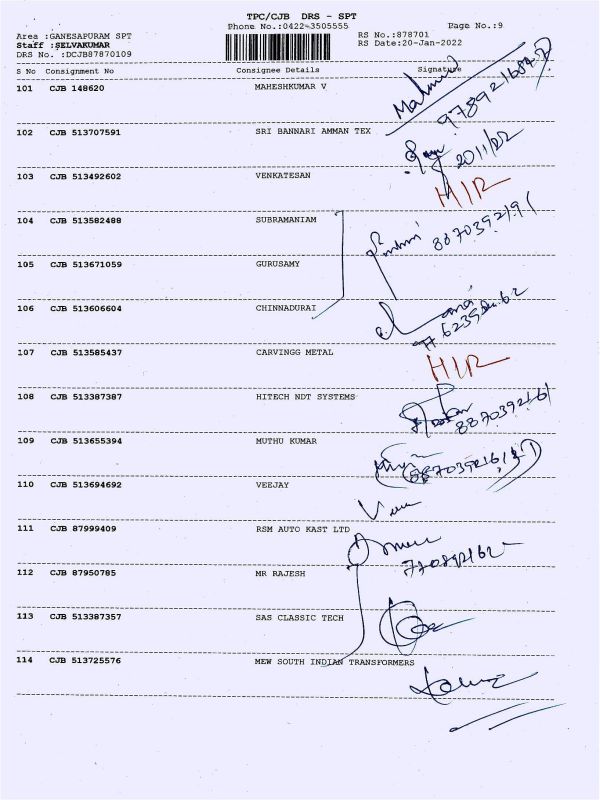 TPC/CJB DRS - SPT
Phone No.:0422-3505555 Page No.:9
Area :GANESAPURAM SPT RS No.:878701
Staff :SELVAKUMAR RS Date:20-Jan-2022
DRS No. :DCJB87870109
S No Consignment No Consignee Details Signature
101 CJB 148620 MAHESHKUMAR V
102 CJB 513707591 SRI BANNARI AMMAN TEX
103 CJB 513492602 VENKATESAN
HIR
104 CJB 513582488 SUBRAMANIAM
105 CJB 513671059 GURUSAMY
106 CJB 513606604 CHINNADURAI
107 CJB 513585437 CARVINGG METAL
HIR
108 CJB 513387387 HITECH NDT SYSTEMS
109 CJB 513655394 MUTHU KUMAR
110 CJB 513694692 VEEJAY
111 CJB 87999409 RSM AUTO KAST LTD
112 CJB 87950785 MR RAJESH
113 CJB 513387357 SAS CLASSIC TECH
114 CJB 513725576 MEW SOUTH INDIAN TRANSFORMERS